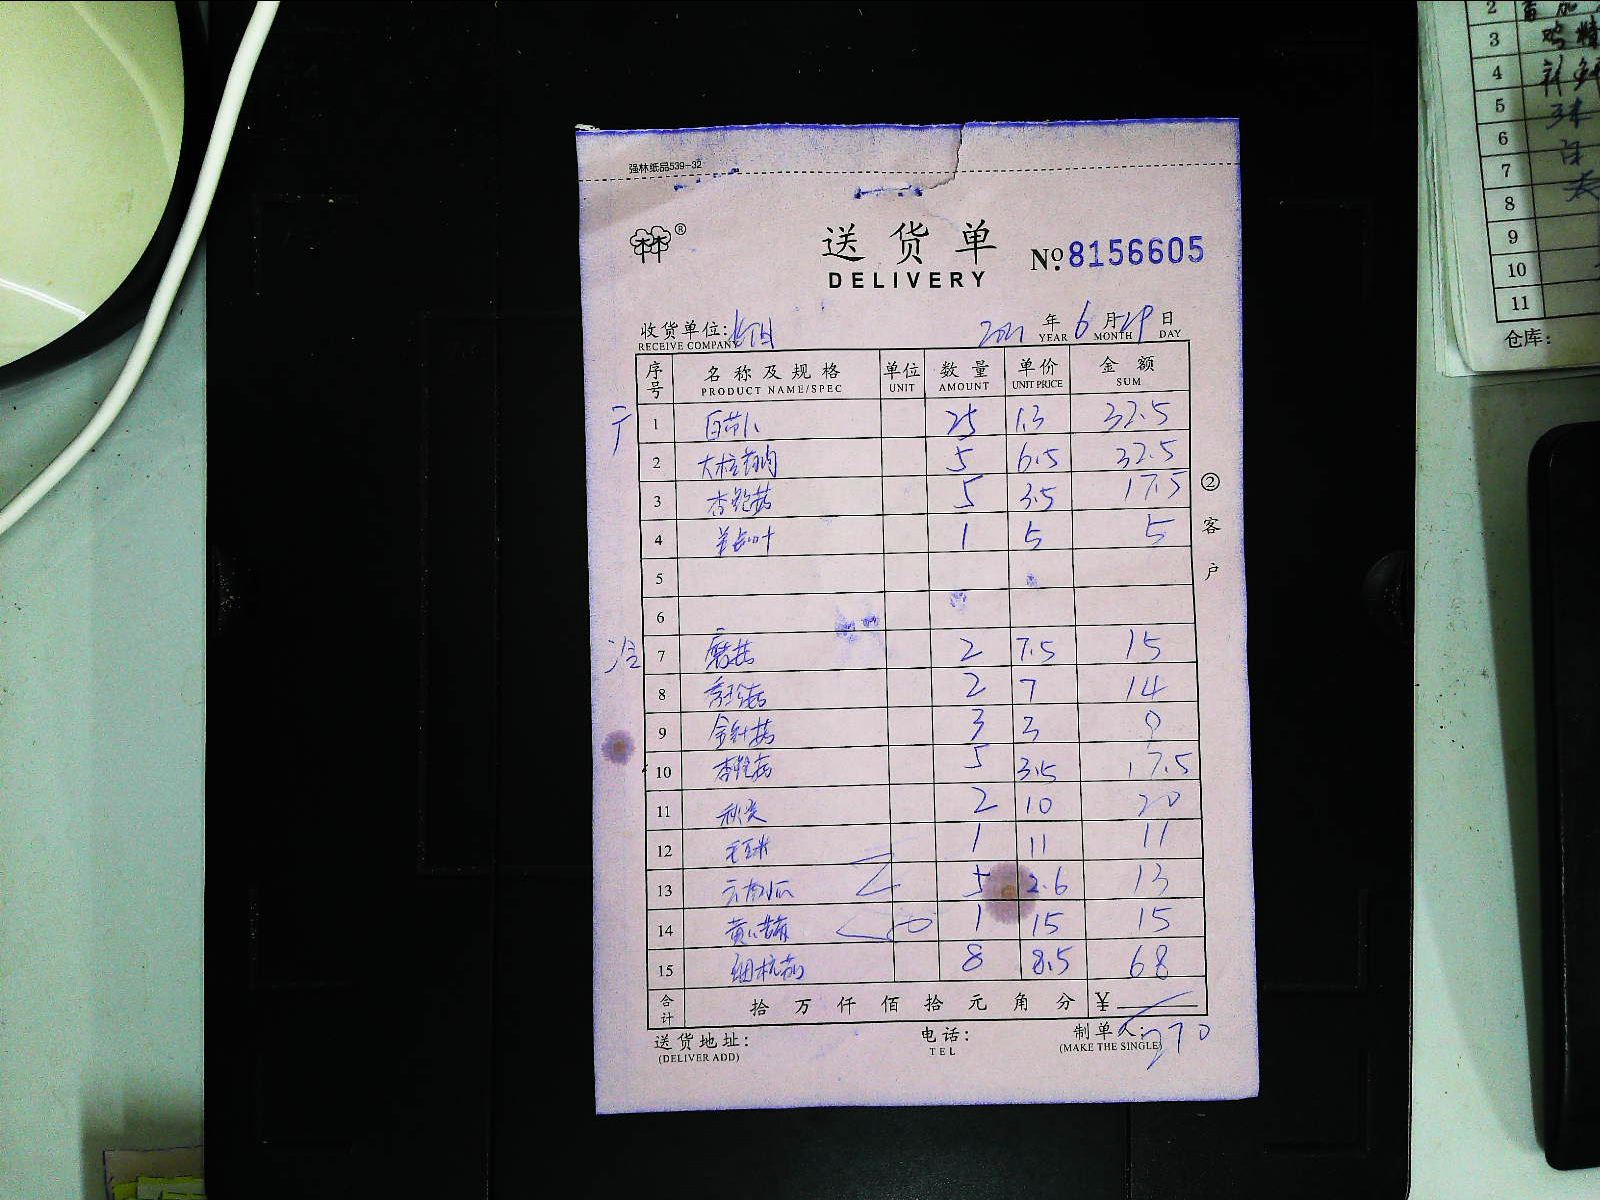 强林纸品539-32
林林®
送货单
DELIVERY
No. 8156605
收货单位:
RECEIVE COMPANY
2021 年 6 月 29 日
YEAR MONTH DAY
序号 名称及规格 单位 数量 单价 金额
PRODUCT NAME/SPEC UNIT AMOUNT UNIT PRICE SUM
1 25 1.3 32.5
2 5 6.5 32.5
3 杏鲍菇 5 3.5 17.5
4 1 5 5
5
6
冷 7 蘑菇 2 7.5 15
8 2 7 14
9 金针菇 3 3 9
10 杏鲍菇 5 3.5 17.5
11 秋葵 2 10 20
12 毛豆米 1 11 11
13 云南小瓜 5 2.6 13
14 1 15 15
15 8 8.5 68
合计 拾 万 仟 佰 拾 元 角 分 ¥
270
送货地址: 电话: 制单人:
(DELIVER ADD) TEL (MAKE THE SINGLE)
②客户
2
3 鸡精
4
5
6
7
8
9
10
11
仓库: